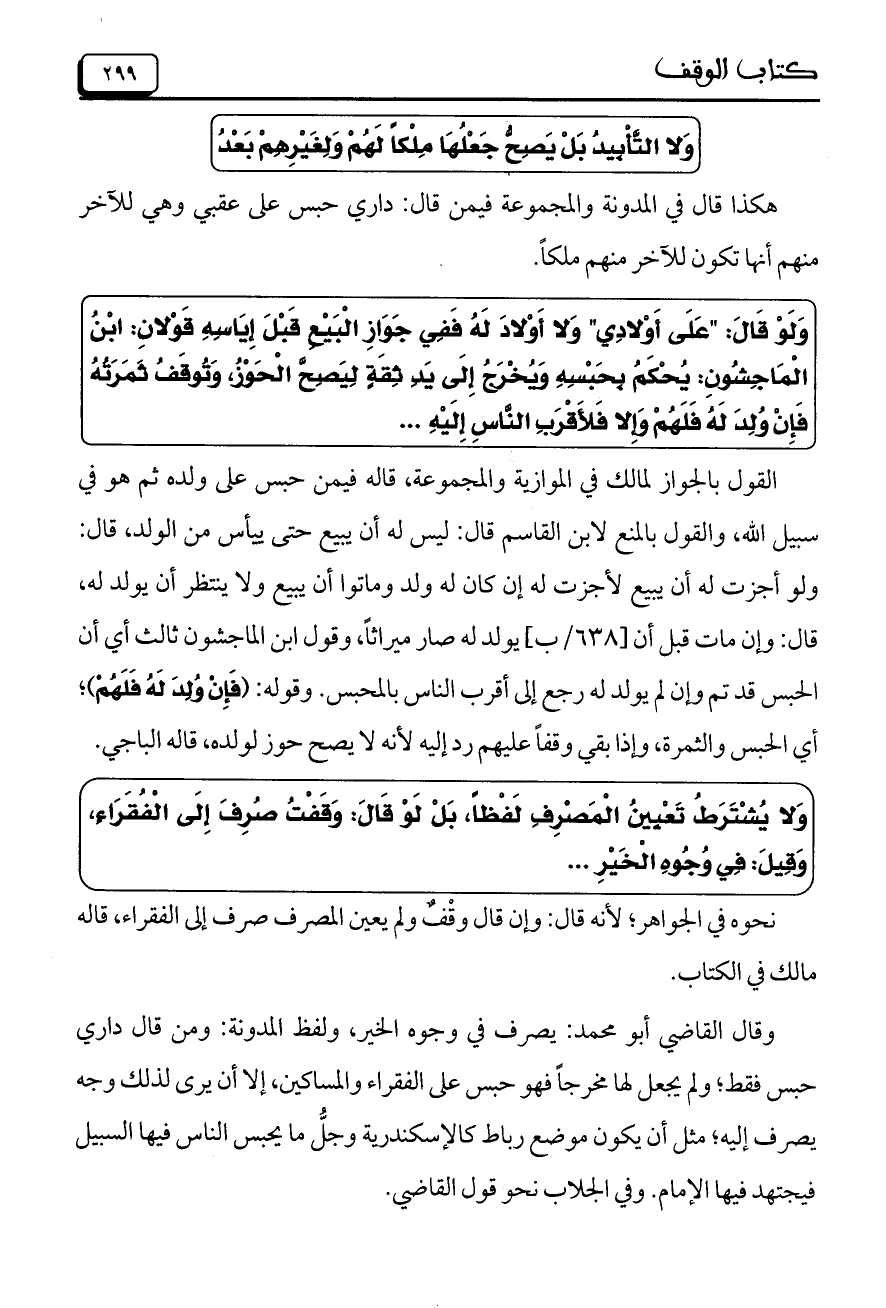 كتاب الوقف
٢٩٩
وَلا التَّأْبِيدُ بَلْ يَصِحُّ جَعْلُهَا مِلْكاً لَهُمْ وَلِغَيْرِهِمْ بَعْدُ
هكذا قال في المدونة والمجموعة فيمن قال: داري حبس على عقبي وهي للآخر
منهم أنها تكون للآخر منهم ملكاً.
وَلَوْ قَالَ: "عَلَى أَوْلادِي" وَلا أَوْلادَ لَهُ فَفِي جَوَازِ الْبَيْعِ قَبْلَ إِيَاسِهِ قَوْلانِ: ابْنُ
الْمَاجِشُونِ: يُحْكَمُ بِحَبْسِهِ وَيُخْرَجُ إِلَى يَدِ ثِقَةٍ لِيَصِحَّ الْحَوْزُ، وَتُوقَفُ ثَمَرَتُهُ
فَإِنْ وُلِدَ لَهُ فَلَهُمْ وَإِلا فَلأَقْرَبِ النَّاسِ إِلَيْهِ ...
القول بالجواز لمالك في الموازية والمجموعة، قاله فيمن حبس على ولده ثم هو في
سبيل الله، والقول بالمنع لابن القاسم قال: ليس له أن يبيع حتى ييأس من الولد، قال:
ولو أجزت له أن يبيع لأجزت له إن كان له ولد وماتوا أن يبيع ولا ينتظر أن يولد له،
قال: وإن مات قبل أن [٦٣٨/ ب] يولد له صار ميراثاً، وقول ابن الماجشون ثالث أي أن
الحبس قد تم وإن لم يولد له رجع إلى أقرب الناس بالمحبس. وقوله: (فَإِنْ وُلِدَ لَهُ فَلَهُمْ)؛
أي الحبس والثمرة، وإذا بقي وقفاً عليهم رد إليه لأنه لا يصح حوز لولده، قاله الباجي.
وَلا يُشْتَرَطُ تَعْيِينُ الْمَصْرِفِ لَفْظاً، بَلْ لَوْ قَالَ: وَقَفْتُ صُرِفَ إِلَى الْفُقَرَاءِ،
وَقِيلَ: فِي وُجُوهِ الْخَيْرِ ...
نحوه في الجواهر؛ لأنه قال: وإن قال وقْفٌ ولم يعين المصرف صرف إلى الفقراء، قاله
مالك في الكتاب.
وقال القاضي أبو محمد: يصرف في وجوه الخير، ولفظ المدونة: ومن قال داري
حبس فقط؛ ولم يجعل لها مخرجاً فهو حبس على الفقراء والمساكين، إلا أن يرى لذلك وجه
يصرف إليه؛ مثل أن يكون موضع رباط كالإسكندرية وجلُّ ما يحبس الناس فيها السبيل
فيجتهد فيها الإمام. وفي الجلاب نحو قول القاضي.